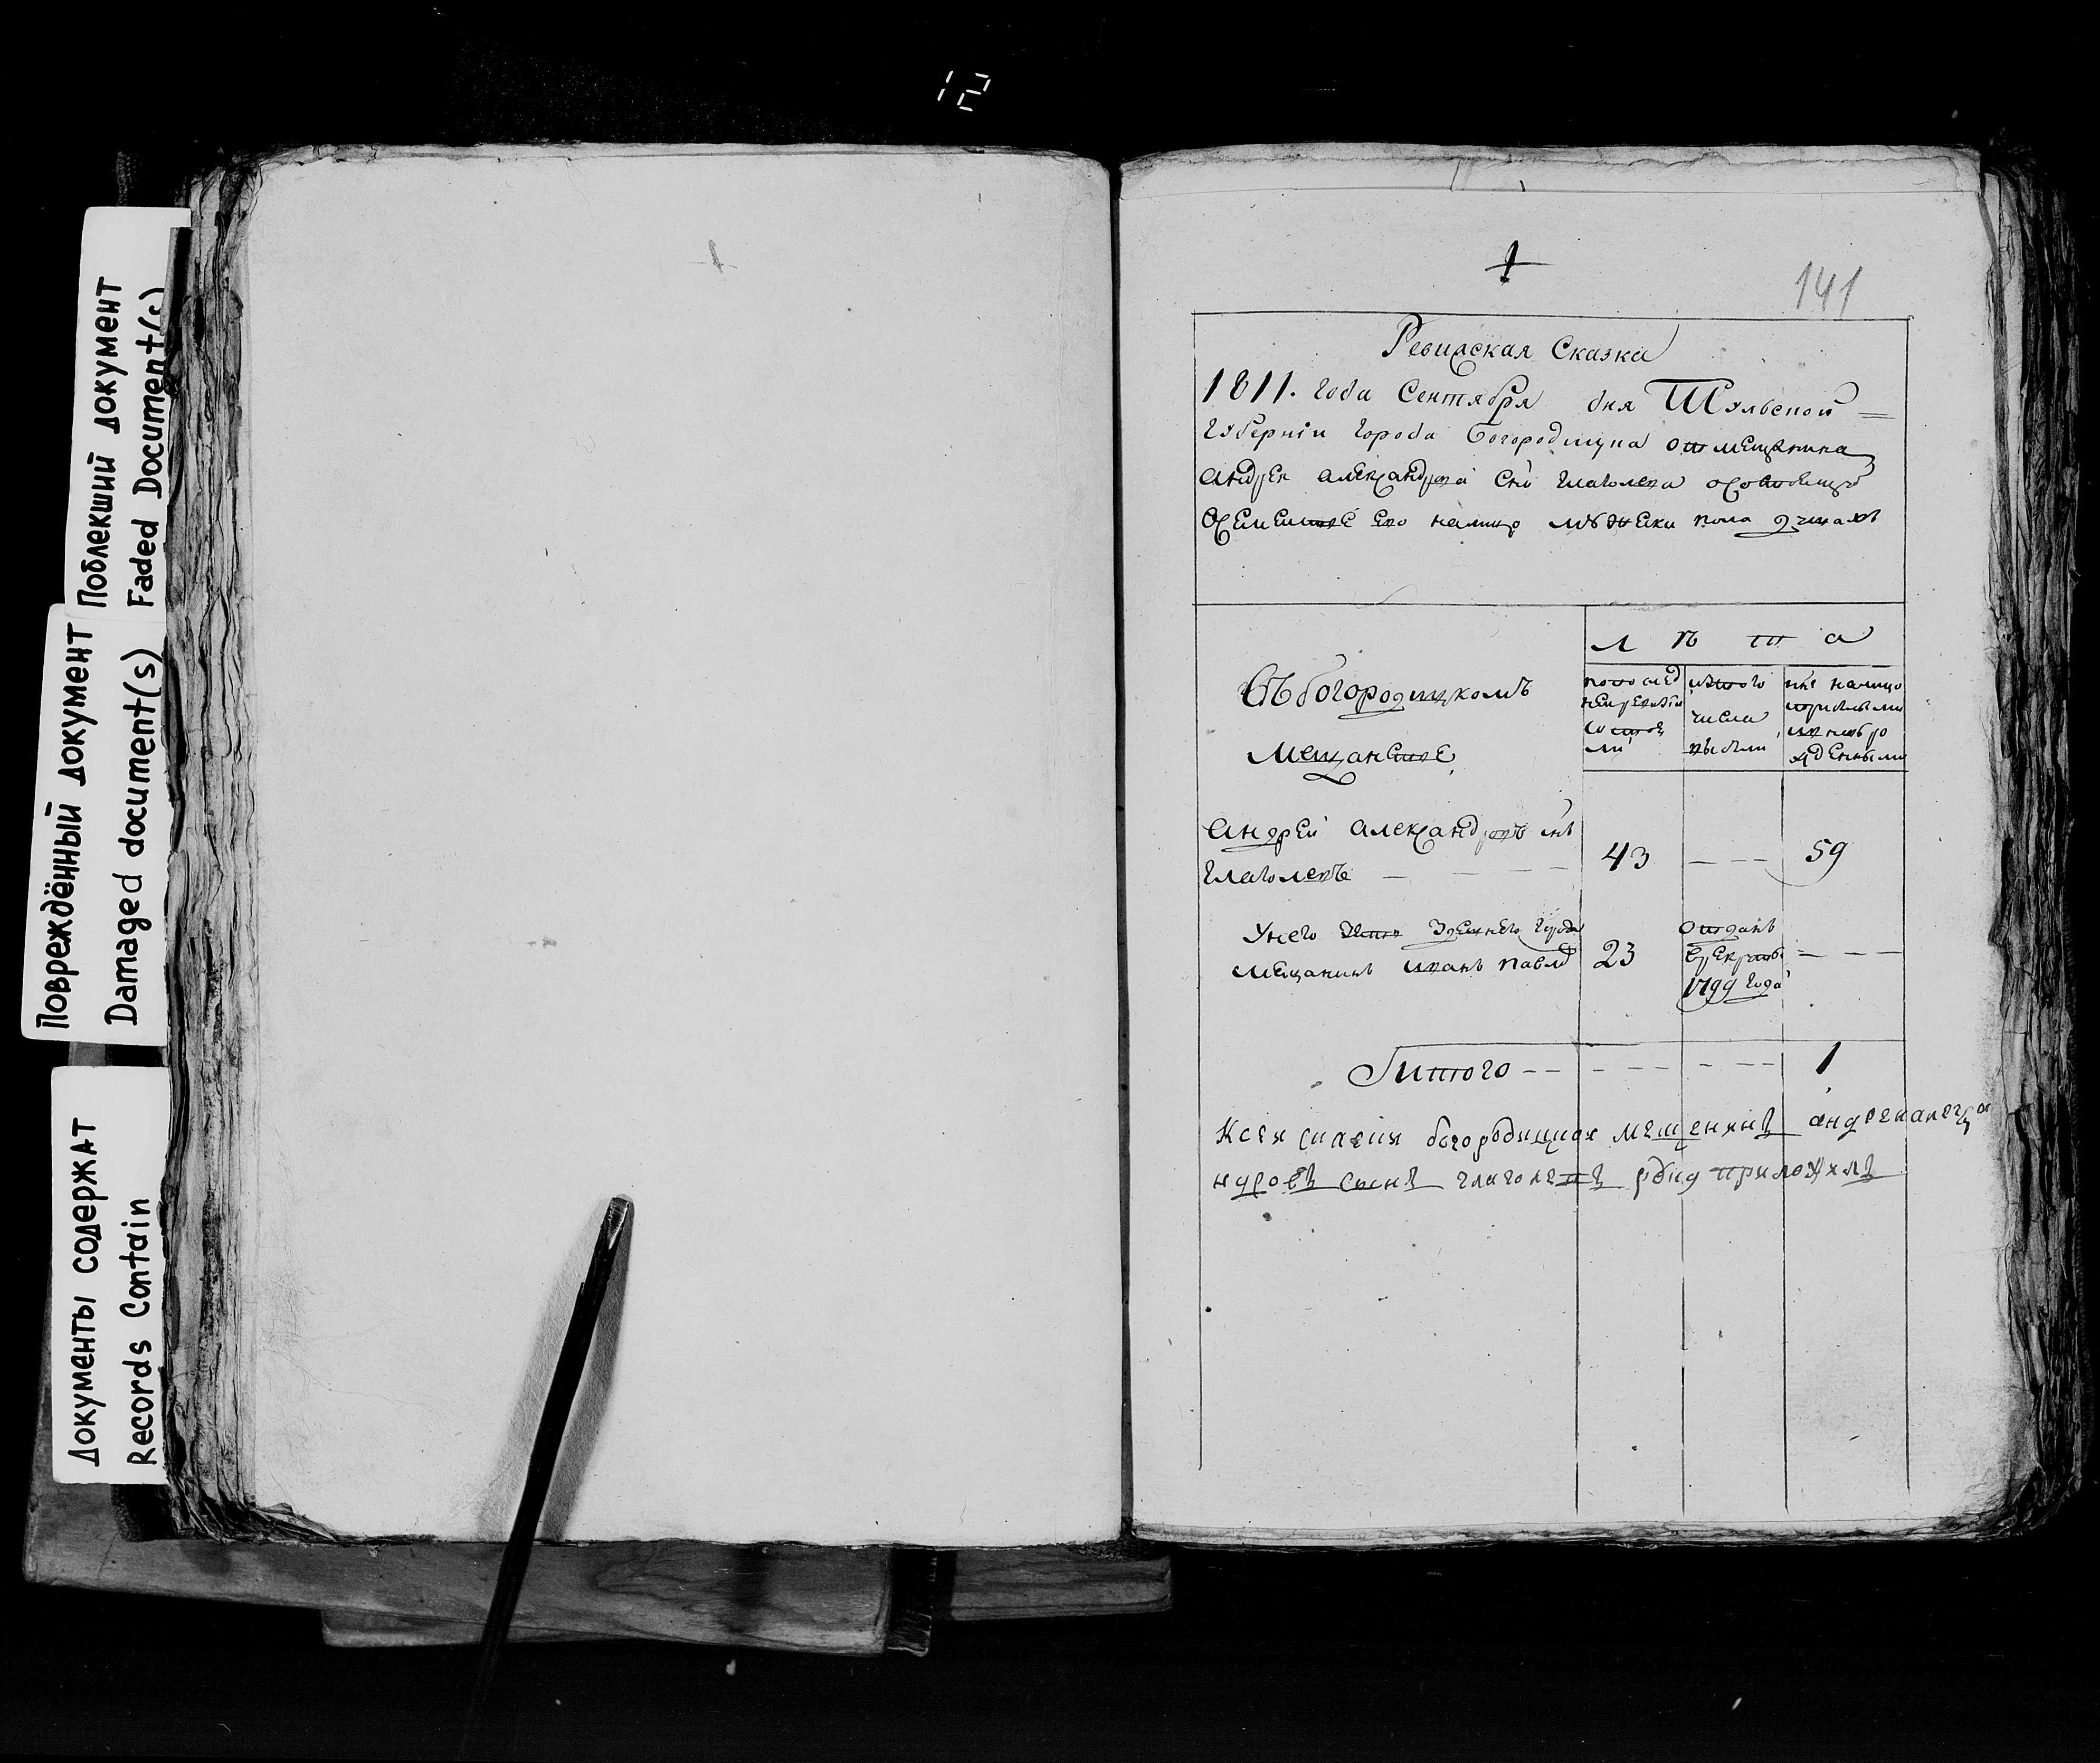 12
Поблекший документ
Faded Document(s)
Повреждённый документ
Damaged document(s)
Документы содержат
Records Contain
1
141
Ревиская Сказка
1811. года Сентября дня Тульской
губернiи города Богородицка от мещанина
Андрея Александрова сна Глаголева
его налицо мужеска пола душахъ
Въ богородицкомъ
мещанстве
лѣта
по последней ревизiи состояли
изтого числа выбыли
ныне налицо
Андрей Александровъ снъ
Глаголевъ
43 — — — 59
Унего зять здешнего города
мещанинъ иванъ павлов
23
отданъ
в рекруты
1799 года
— — —
Итого
1
Ксей скаски богородицкой мещенинъ андреи алекса
ндровъ сынъ глаголевъ руку приложилъ